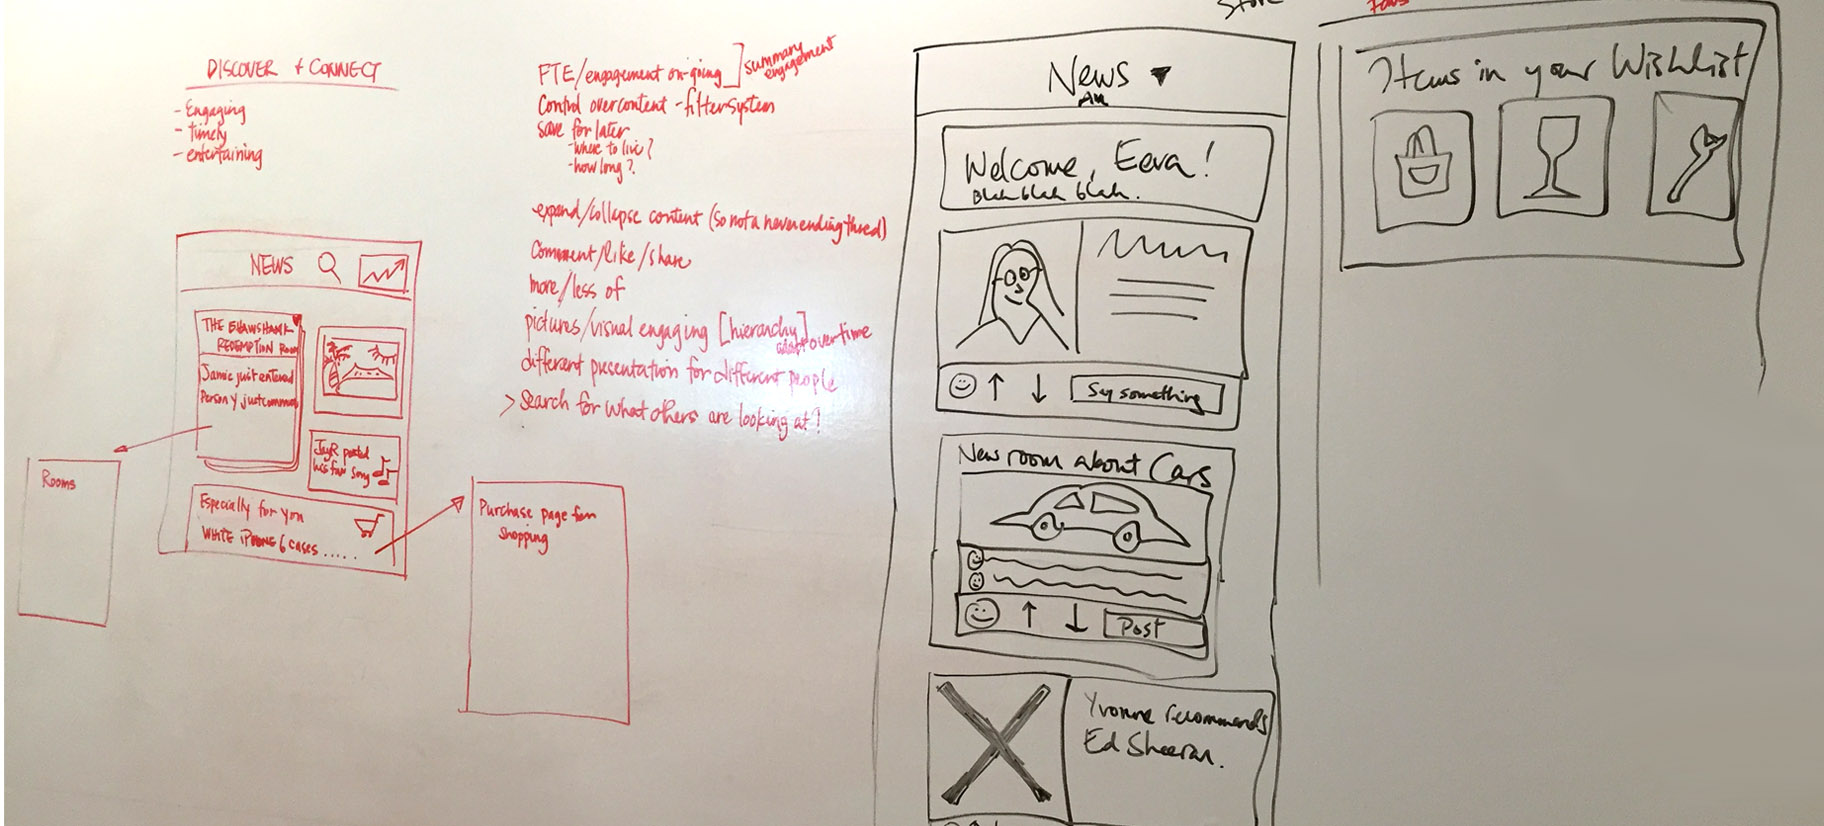 DISCOVER + CONNECT
- Engaging
- timely
- entertaining
NEWS
THE SHAWSHANK
REDEMPTION ROOM
Jamie just entered
Person y just commen
JayR posted
his fav song
Especially for you
WHITE iPHONE 6 CASES .....
Rooms
Purchase page for
shopping
FTE/engagement on-going ] summary
engagement
Control over content - filter system
save for later
- where to live?
- how long?
expand/collapse content (so not a never ending thread)
Comment/like/share
more/less of
pictures/visual engaging [hierarchy]
over time
different presentation for different people
> Search for what others are looking at?
Store
News ▼
All
Welcome, Eeva!
Blah blah blah.
Say something
New room about Cars
Post
Yvonne recommends
Ed Sheeran.
Items in your Wishlist